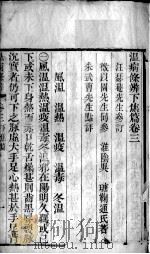 溫病條辨下焦篇卷三
汪瑟菴先生參訂
徵以園先生同參　淮陰吳　瑭鞠通氏著
朱武曹先生點評
風溫　溫熱　溫疫　溫毒　冬溫
㊀風溫溫熱溫疫溫毒冬溫邪在陽明久羈或已
下或未下身熱面赤口乾舌燥甚則齒黑脣裂脈
沉實者仍可下之脈虛大手足心熱甚於手足